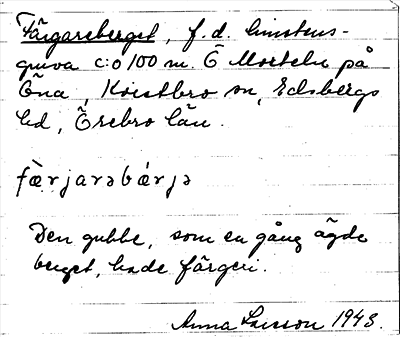 Färgareberget, f.d. limstens-
gruva c:o 100 m. Ö Morteln på
Öna, Kvistbro sn, Edsbergs
hd, Örebro län.
fæ̀rjarəbǽrjə
Den gubbe, som en gång ägde
berget, hade färgeri.
Anna Larsson 1943.